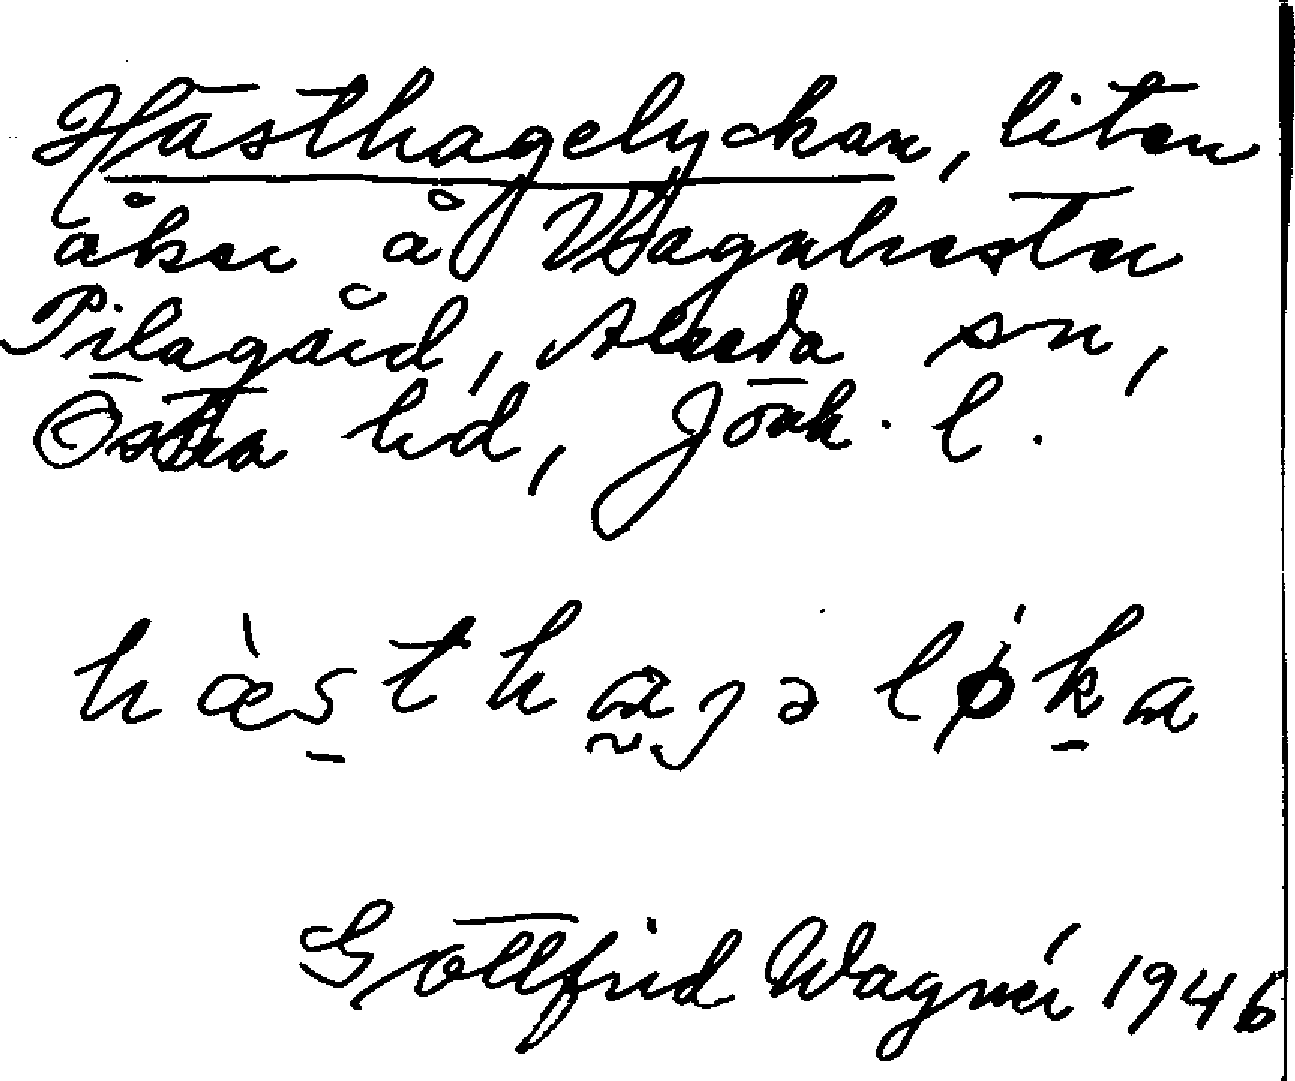 Hästhagelyckan, liten
åker å Vagnhester
Pilagård, Alseda sn,
Östra hd, Jönk. l.
hæ̀s̱thagəlǿḵa
Gottfrid Wagnér 1946